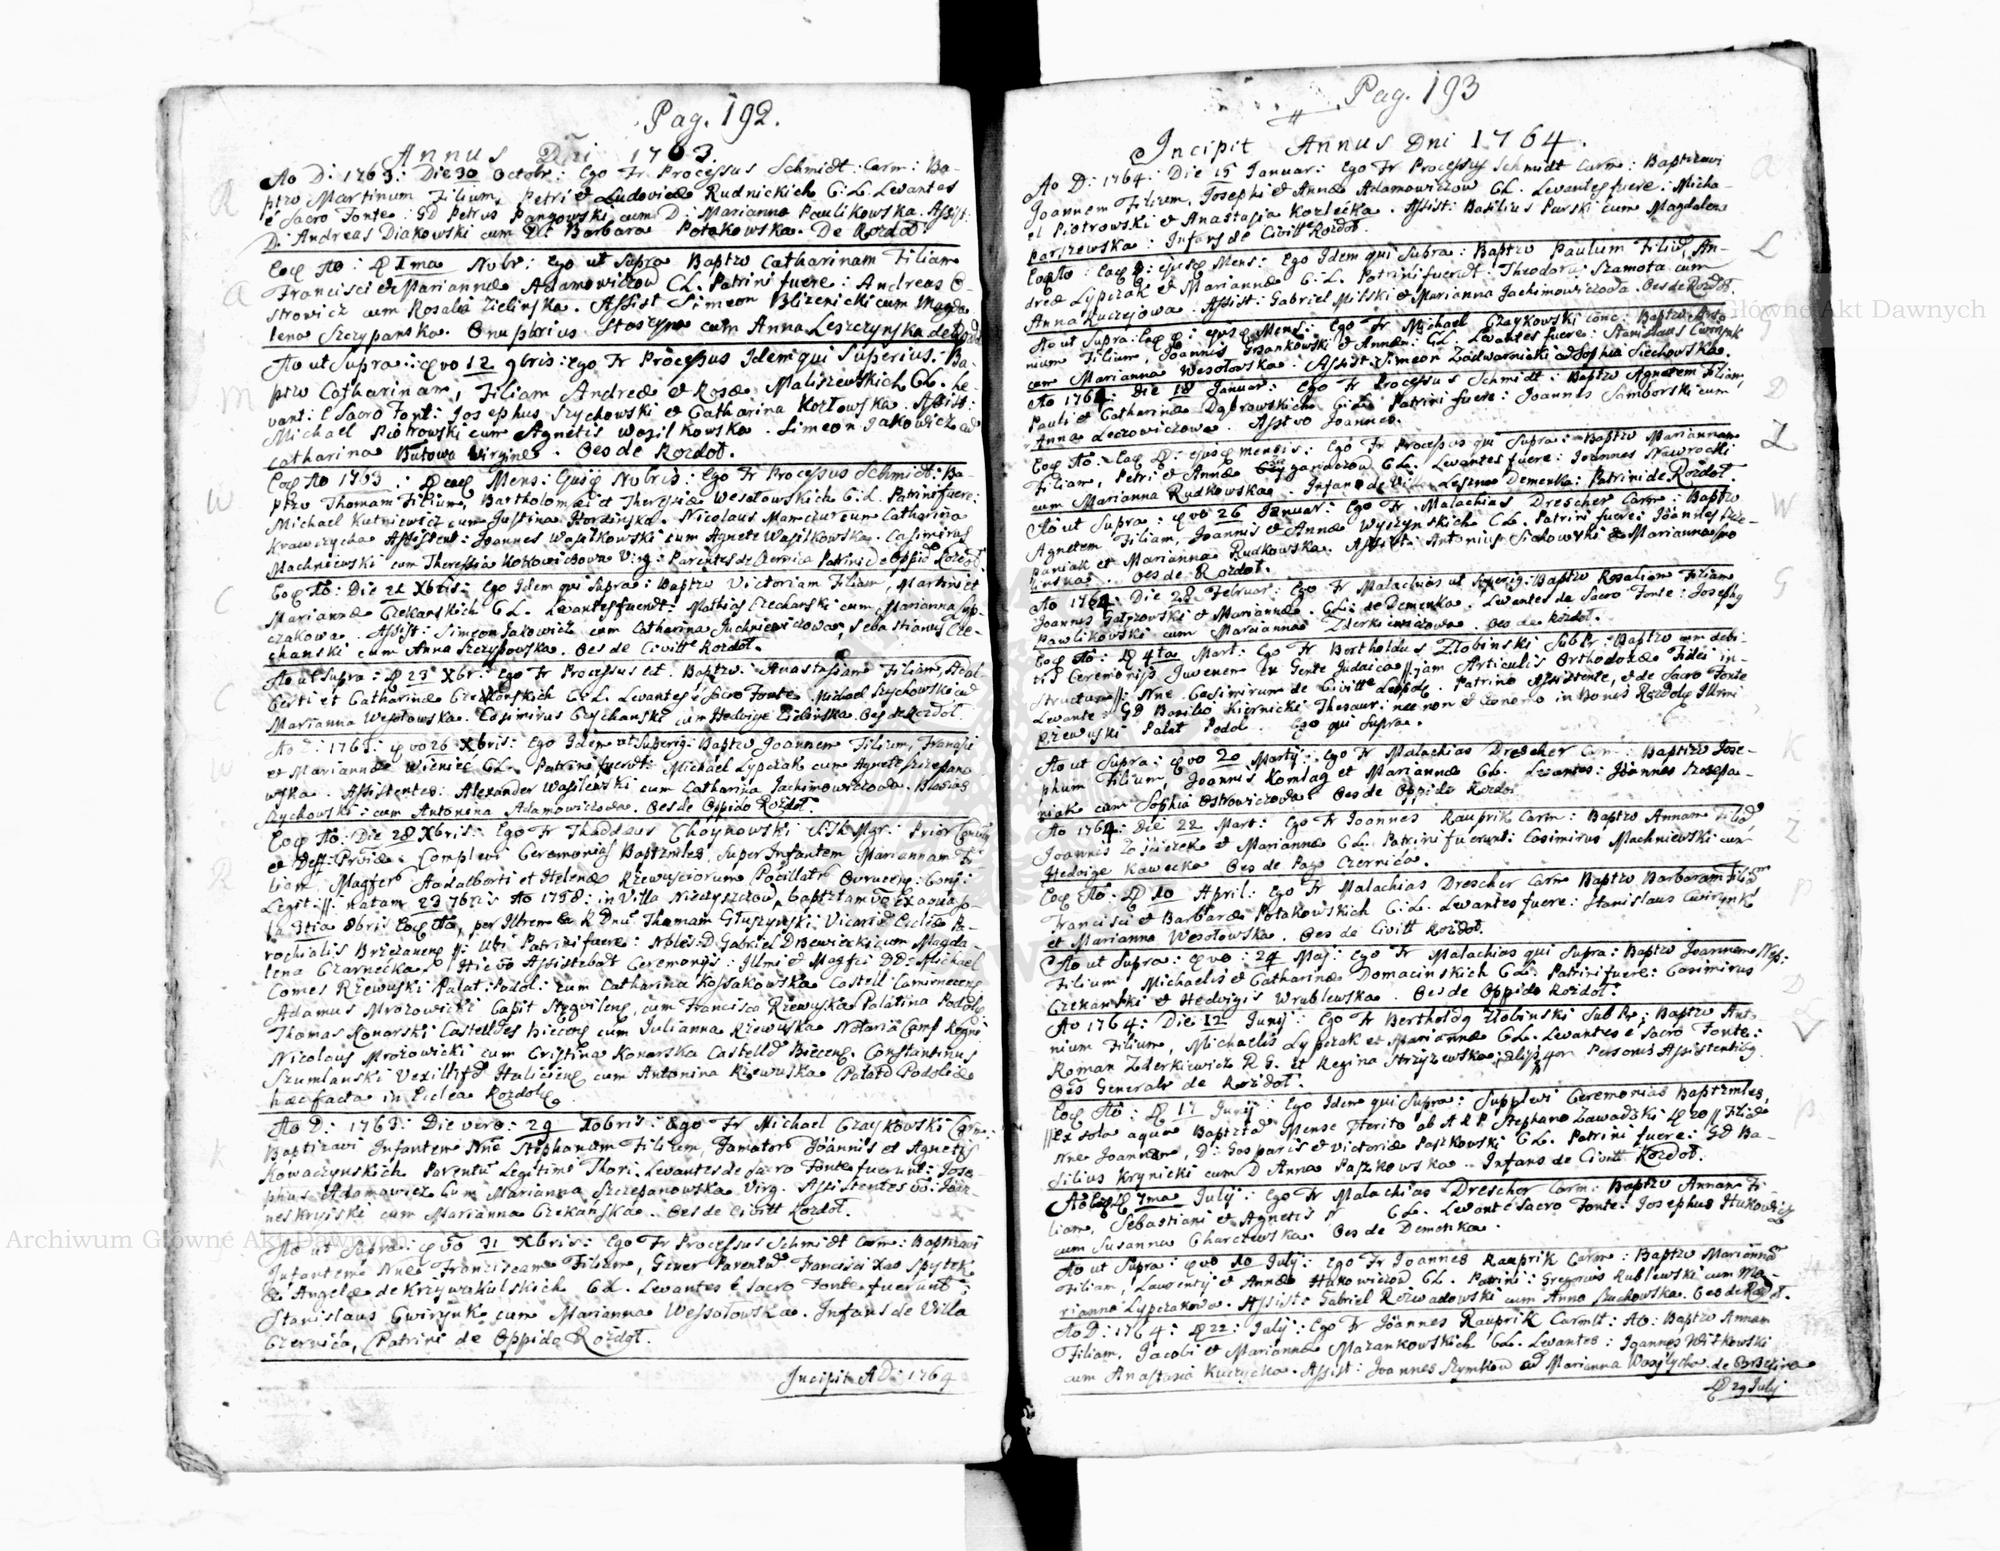 Pag. 192.
Annus Dni 1763.
Ao D: 1763: Die 30 Octobr: Ego Fr Processus Schmidt: Carm: Ba-
ptzo Martinum Filium, Petri et Ludovicæ Rudnickich C: L: Levantes
e Sacro Fonte: GD Petrus Pangowski cum D: Marianna Paulikowska. Assist:
D: Andreas Diakowski cum Barbara Potakowska. De Rozdoł
Eoq Ao: Ima Nobr: Ego ut Supra Baptzo Catharinam Filiam
Francisci et Mariannæ Adamowiczow CL. Patrini fuere: Andreas O-
strowicz cum Rosalia Zielinska. Assist Simeon Blizenicki cum Magda
lena Szczypanska. Onuphrius cum Anna Leszczynska de
Ao ut Supra: qvo 12 9bris: Ego Fr Processus Idem qui Superius. Ba-
ptzo Catharinam, Filiam Andreæ et Rosæ Maliszewskich CL. Le-
vant: e Sacro Font: Josephus Szychowski et Catharina Kozłowska. Assist:
Michael Piotrowski cum Agnetis Wasilkowska. Simeon Jakowicz
Catharina Butowa Virgine. Oes de Rozdoł.
Eoq Ao 1763: eoq Mens: Nobris: Ego Fr Processus Schmidt: Ba-
ptzo Thomam Filium, Bartholomæi et Theresiæ Wesołowskich C: L. Patrini fuere:
Michael Kutniewicz cum Justina Hordinska. Nicolaus Mamczur cum Catharina
Krawczycha Assistent: Joannes Wasilkowski cum Agnete Wasilkowska. Casimirus
Machniewski cum Theressia Virg: Parentes de Czernica Patrini de Oppido Rozdoł.
Eoq Ao: Die 21 Xbris: Ego Idem qui Supra: Baptzo Victoriam Filiam, Martini et
Mariannæ Czekanskich CL. Levantes fuerunt: Mathias Czechanski cum Marianna
czakowa. Assist: Simeon Jakowicz cum Catharina Juchniewiczowa, Sebastianus Cze-
chanski cum Anna Szczypowska. Oes de Civitt Rozdoł.
Ao ut Supra: 23 Xbr: Ego Fr Processus et Baptzo: Anastasiam Filiam, Adal-
berti et Catharinæ Czekanskich C: L. Levantes e Sacro Fonte Michael Szychowski cum
Marianna Wesołowska. Casimirus Czychanski cum Hedvige Zielinska. Oes de Rozdoł.
Ao D: 1763: qvo 26 Xbris: Ego Idem ut Superig: Baptzo Joannem Filium, Francisci
et Mariannæ Wieniec CL. Patrini fuerunt: Michael Lypczak cum Agnete Szczepano
wska. Assistentes: Alexander Wasilewski cum Catharina Jachimowiczowa. Blasius
Rychowski: cum Antonina Adamowiczowa. Oes de Oppido Rozdoł.
Eoq Ao: Die 28 Xbris: Ego Fr Thaddæus Choynowski Mgr: Prior
et Deff: Prviæ: Complevi Ceremonias Baptzmles, Super Infantem Mariannam Fi-
liam, Magfcor Aadalberti et Helenæ Rzewusciorum Pocillatr Ovruceng: Conj:
Legit: natam 23 7bris Ao 1758: in Villa Nieryszczow, baptzatam vo ex aqua
3tia 8bris Eoq Ao, per Illrem R Dnu Thomam Głuszynski Vicariu Ecclæ Pa-
rochialis Brzezaneng: Ubi Patrini fuere: Nobles: D Gabriel Drzewiecki cum Magda-
lena Czarnecka. Hic vo Assistebat Ceremonys: Illmi et Magfci DD: Michael
Comes Rzewuski Palat: Podol: cum Catharina Kossakowska Castell Camieneceng
Adamus Mrozowicki Capit Stegvileng, cum Francisca Rzewuska Palatina Podolig
Thomas Konarski Castelldes Bieceng cum Julianna Rzewuska Notaria Camp Regni
Nicolaus Mrozowicki cum Cristina Konarska Castelld Bieceng. Constantinus
Szumlanski Vexillifd Haliciens cum Antonina Rzewuska Palatd Podolide
hæc facta in Ecclea Rozdoleg.
Ao D: 1763: Die vero: 29 Xobris: Ego Fr Michael Czaykowski Carm:
Baptizavi Infantem Nne Stephanum Filium, Famator Joannis et Agnetis
Kowaczynskich Parentu Legitimi Thori. Levantes de Sacro Fonte fuerunt: Jose-
phus Adamowicz cum Marianna Szczepanowska Virg. Assistentes vo: Joan-
nes Kryiski cum Marianna Czekanska. Oes de Civitt Rozdoł.
Ao ut Supra: qvo 31 Xbris: Ego Fr Processus Schmidt Carm: Baptizavi
Infantem Nne Franciscam Filiam, Gener Parentu Francisci Xao Spytek
et Angelæ de Krzywokulskich C: L. Levantes e Sacro Fonte fuerunt:
Stanislaus Cwirynk cum Marianna Wessołowska. Infans de Villa
Czernica, Patrini de Oppido Rozdoł.
Incipit AD: 1764
Pag. 193
Incipit Annus Dni 1764.
Ao D: 1764: Die 15 Januar: Ego Fr Processus Schmidt Carm: Baptizavi
Joannem Filium, Josephi et Annæ Adamowiczow CL. Levantes fuere: Micha-
el Piotrowski et Anastasia Kozlecka. Assist: Basilius Parski cum Magdalena
Parszewska: Infans de Civitte Rozdoł.
Eoq Ao: Eoq D: ejusq Mens: Ego Idem qui Supra: Baptzo Paulum Filiu, An-
dreæ Lypczak et Mariannæ C: L. Patrini fuerunt: Theodorus Szamota cum
Anna Kuczejowa. Assist: Gabriel Milski et Marianna Jachimowiczowa. Oes de Rozdoł.
Ao ut Supra: Eoq D: ejusq Mens: Ego Fr Michael Czaykowski Conc: Baptzo Anto
nium Filium, Joannis Grzankowski et Annæ: CL. Levantes fuere: Stanislaus Cwirynk
cum Marianna Wesołowska. Assist: Simeon Zadwarnicki cum Sophia Siechowska.
Ao 1764: Die 18 Januar: Ego Fr Processus Schmidt: Baptzo Agnetem Filiam,
Pauli et Catharinæ Dąbrowskich C: L. Patrini fuere: Joannes Samborski cum
Anna Leczowiczowa. Asst vo Joannes.
Eoq Ao: Eoq D: ejusq mensis: Ego Fr Processus qui Supra: Baptzo Mariannam
Filiam, Petri et Annæ Cyganaczow CL. Levantes fuere: Joannes Nawrocki
cum Marianna Rudkowska. Infans de Demenka: Patrini de Rozdoł.
Ao ut Supra: qvo 26 Januar: Ego Fr Malachias Drescher Carm: Baptzo
Agnetem Filiam, Joannis et Annæ Wyczynskich CL. Patrini fuere: Joannes Szcze-
paniak et Marianna Rudkowska. Assist: Antonius Sichowski et Marianna
linska. Oes de Rozdoł.
Ao 1764: Die 28 Februar: Ego Fr Malachias ut Superig: Baptzo Rosaliam Filiam
Joannis Gałzowski et Mariannæ. CL: de Demenka. Levantes de Sacro Fonte: Josephg
Pawlikowski cum Marianna Zderkiewiczowa. Oes de Rozdoł.
Eoq Ao: 4ta Mart: Ego Fr Bertholdus Złobinski Sub Pr: Baptzo cum debi-
tis Ceremoniis Juvenem ex Gente Judaica jam Articulis Orthodoxæ Fidei in-
structum: Nne Casimirum de Civitte Leopolg. Patrino Assistente, et de Sacro Fonte
Levante: GD Basilio Kiernicki Thesaur: nec non et Econ mo in Bonis Rozdolg Illrmi
Rzewuski Palat Podol: Ego qui Supra.
Ao ut Supra: qvo 20 Martij: Ego Fr Malachias Drescher Carm: Baptizo Jose-
phum Filium, Joannis Komlag et Mariannæ CL. Levantes: Joannes Szczepa-
niak cum Sophia Ostrowiczowa. Oes de Oppido Rozdoł
Ao 1764: Die 22 Mart: Ego Fr Joannes Rauprik Carm: Baptzo Annam Filia,
Joannis et Mariannæ CL. Patrini fuerunt: Casimirus Machniewski cum
Hedvige Kawecka Oes de Pago Czernica.
Eoq Ao: 10 April: Ego Fr Malachias Drescher Carm Baptzo Barbaram Filia
Francisci et Barbaræ Potakowskich C: L. Levantes fuere: Stanislaus Cwirynk
et Marianna Wesołowska. Oes de Civitt Rozdoł.
Ao ut Supra: qvo: 24 Maj: Ego Fr Malachias qui Supra: Baptzo Joannem Nep:
Filium, Michaelis et Catharinæ Domacinskich CL: Patrini fuere: Casimirus
Czekanski et Hedvigis Wrublewska. Oes de Oppido Rozdoł.
Ao 1764: Die 12 Junij: Ego Fr Bertholdg Złobinski Sub Pr: Baptzo Anto
nium Filium, Michaelis Lypczak et Mariannæ CL. Levantes e Sacro Fonte:
Roman Zderkiewicz R G. et Regina Strzyzewska: Personis Assistentibg
Oes Generalr de Rozdoł.
Eoq Ao: 17 Junij: Ego Idem qui Supra: Supplevi Ceremonias Baptzmles,
Ex sola aqua Baptzta Mense Pterito ab A R P Stephano Zawadzki 20 Filio
Nne Joannem, D: Gasparis et Victoriæ Paszkowski CL. Patrini fuere: GD Ba-
silius Krynicki cum D Anna Paszkowska. Infans de Civitt Rozdoł.
Ao Eoq 7ma Julij: Ego Fr Malachias Drescher Carm: Baptzo Annam Fi
liam, Sebastiani et Agnetis N CL. Levante Sacro Fonte: Josephus Hukowicz
cum Susanna Charczewska. Oes de Demenka.
Ao ut Supra: qvo 10 Julij: Ego Fr Joannes Rauprik Carm: Baptzo Marianna
Filiam, Laurentij et Annæ Hukowiczow CL. Patrini: Gregorius Rublewski cum Ma-
rianna Lypczakowa. Assist: Gabriel Rozwadowski cum Anna Suchowska. Oes de Rozdoł.
Ao D: 1764: 22: Julij: Ego Fr Joannes Rauprik Carmlt: Ao: Baptzo Annam
Filiam, Jacobi et Mariannæ Mazankowskich CL. Levantes: Joannes Witkowski
cum Anastasia Kuczycka. Assist: Joannes Szymkow et Marianna Wasylycha de Brzezina
29 Julij
Archiwum Główne Akt Dawnych
Archiwum Główne Akt Dawnych